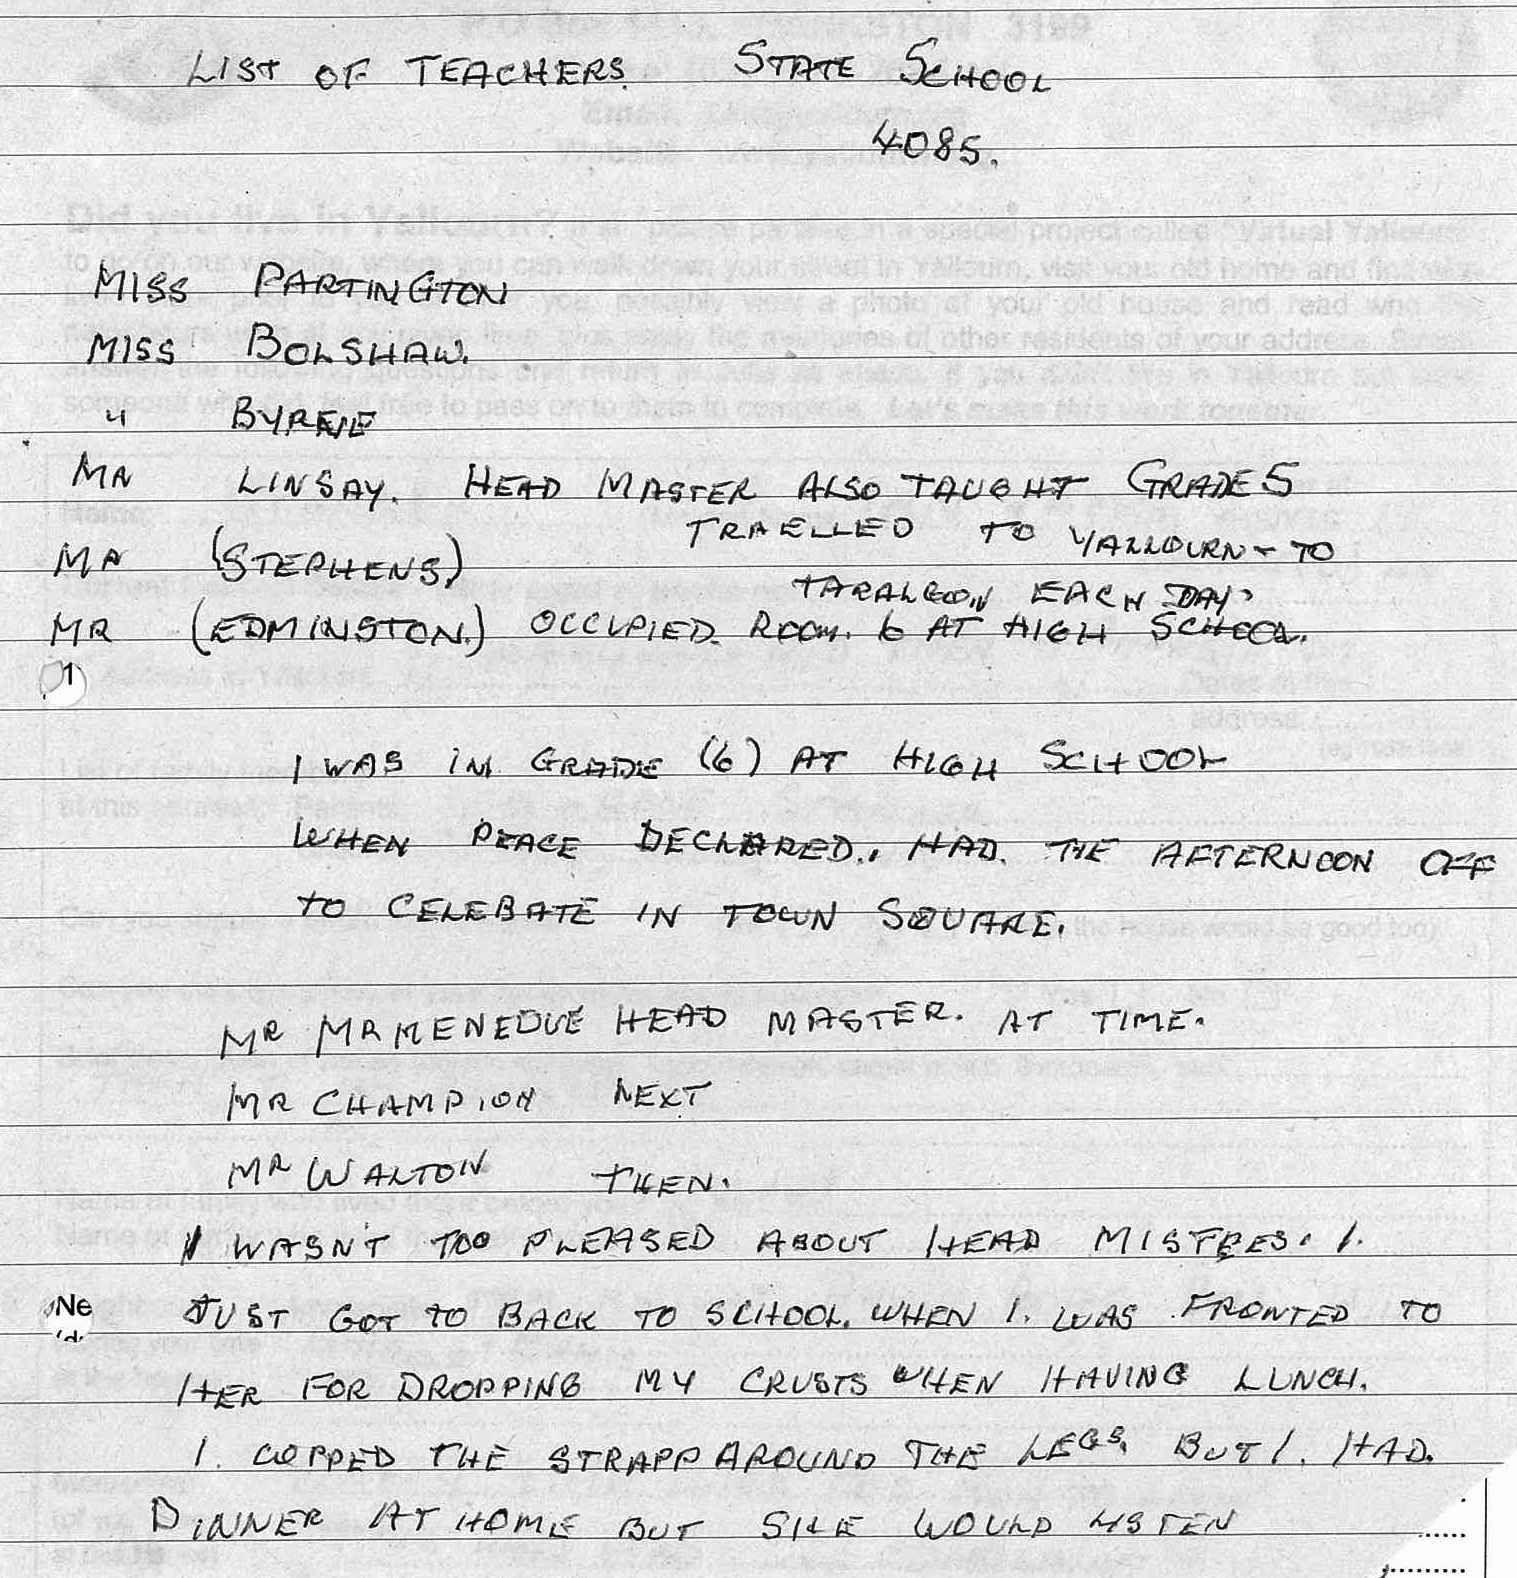 LIST OF TEACHERS. STATE SCHOOL
4085.
MISS PARTINGTON
MISS BOLSHAW.
" BYRNE
MR LINSAY. HEAD MASTER ALSO TAUGHT GRADE 5
TRAELLED TO YALLOURN - TO
MR (STEPHENS)
TARALGON EACH DAY.
MR (EDMINSTON.) OCCUPIED ROOM. 6 AT HIGH SCHOOL.
1
I WAS IN GRADE (6) AT HIGH SCHOOL
WHEN PEACE DECLARED.. HAD. THE AFTERNOON OFF
TO CELEBATE IN TOWN SQUARE.
MR MRKENEDUE HEAD MASTER. AT TIME.
MR CHAMPION NEXT
MR WALTON THEN.
I WASN'T TOO PLEASED ABOUT HEAD MISTRES. I.
Ne
JUST GOT TO BACK TO SCHOOL. WHEN I. WAS FRONTED TO
HER FOR DROPPING MY CRUSTS WHEN HAVING LUNCH.
I. COPPED THE STRAPP AROUND THE LEGS. BUT I. HAD.
DINNER AT HOME BUT SHE WOULD LISTEN